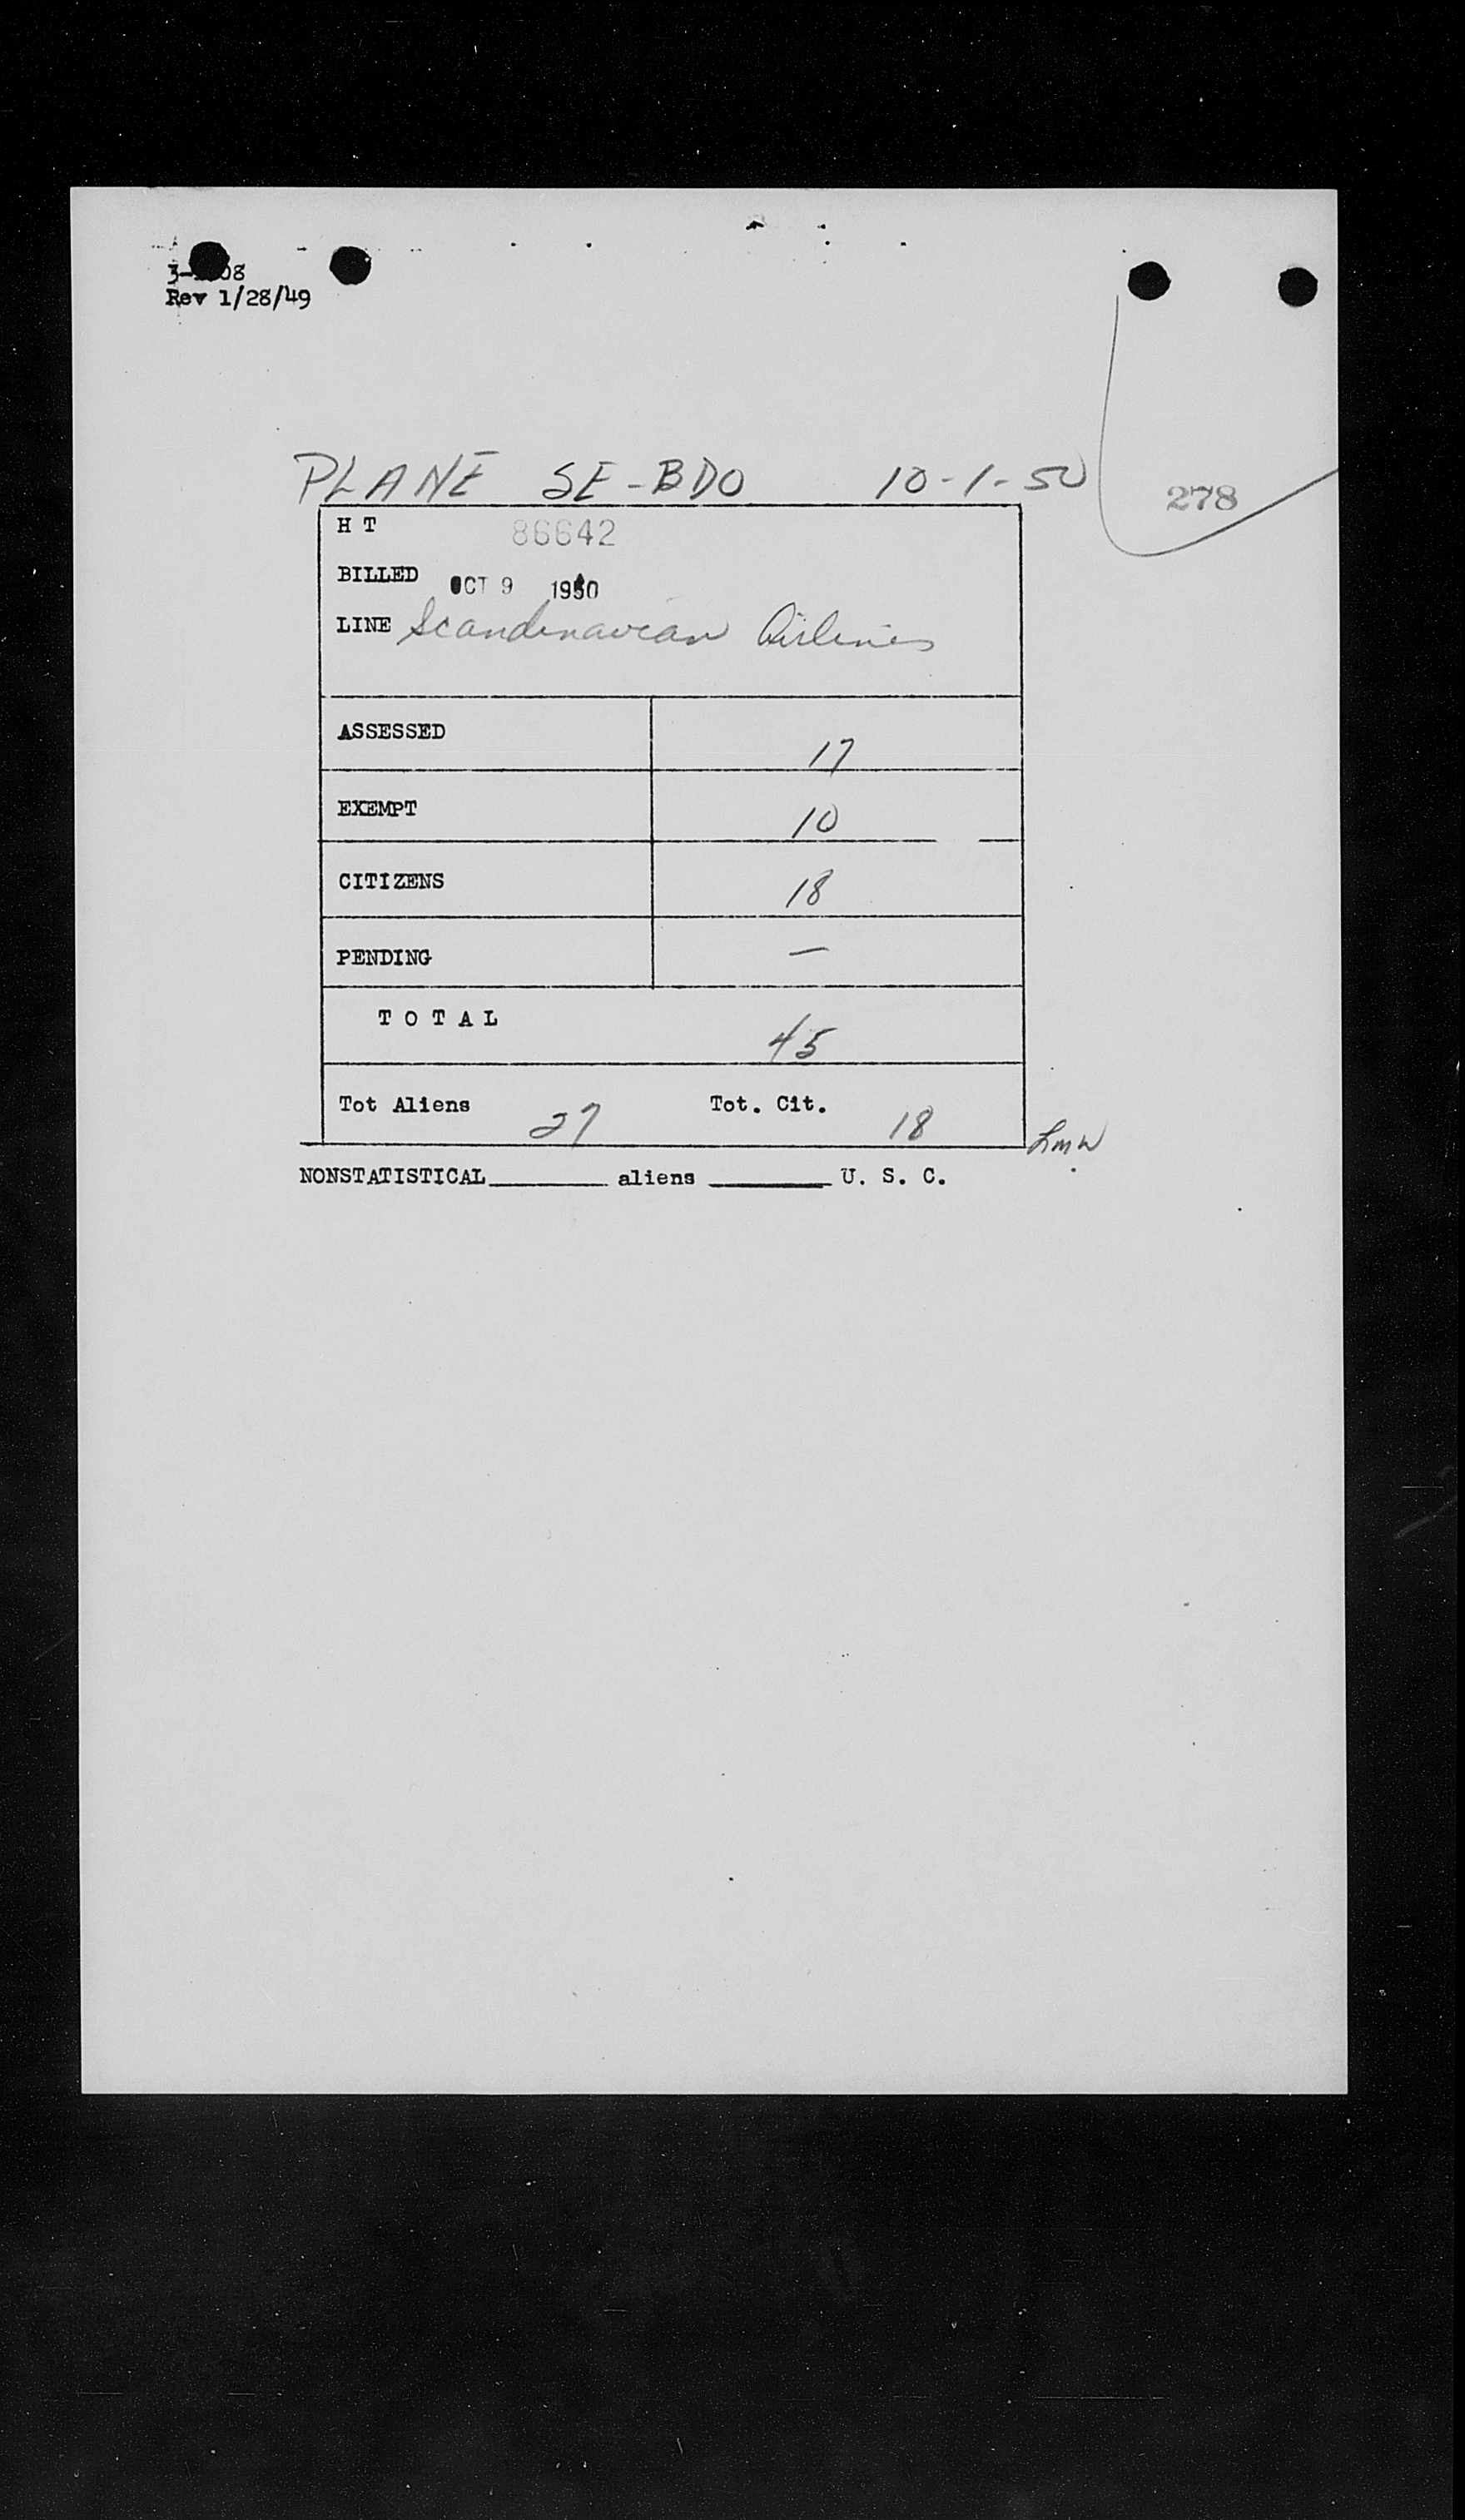 Rev 1/28/49
PLANE SE-BDO 10-1-50
278
H T 86642
BILLED OCT 9 1950
LINE Scandinavian Airlines
ASSESSED 17
EXEMPT 10
CITIZENS 18
PENDING —
T O T A L 45
Tot Aliens 27 Tot. Cit. 18
Lmw
NONSTATISTICAL________ aliens ________ U. S. C.